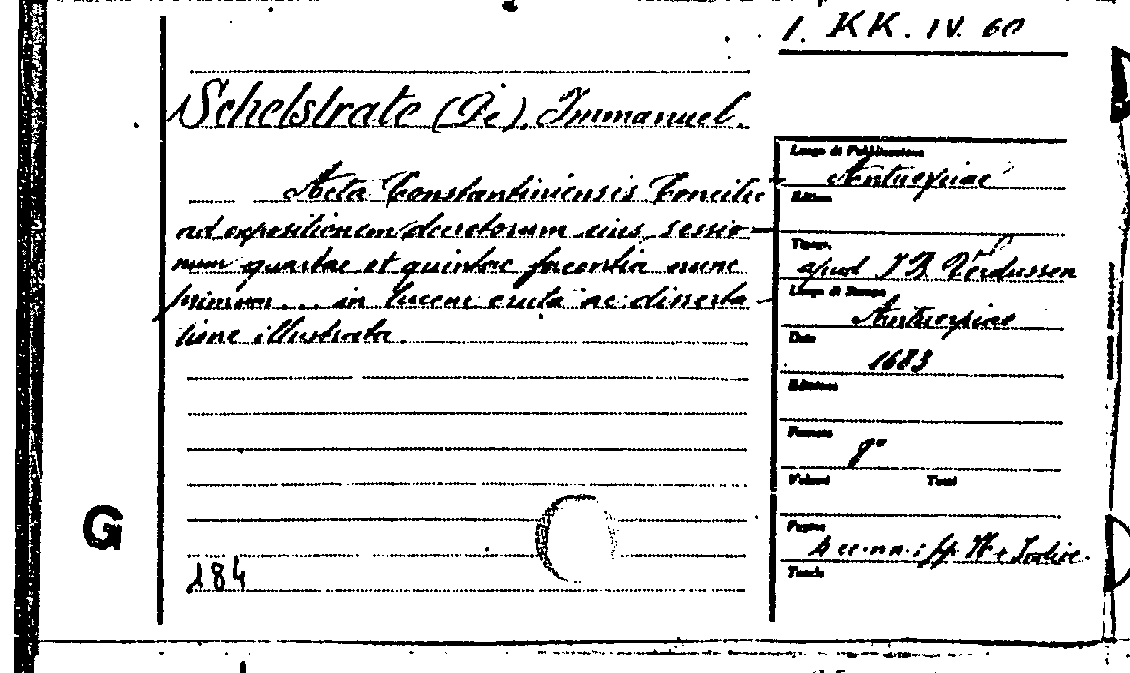 1. KK. IV. 60
Schelstrate (De), Immanuel.
Acta Constantiniensis Concilii
ad expositionem decretorum eius sessio-
num quartae et quintae facentia nunc
primum ... in lucem eruta ac disserta-
tione illustrata.
184
G
Luogo di Pubblicazione
Antuerpiae
Editore
Tipogr.
apud J B Verdussen
Luogo di Stampa
Antuerpiae
Data
1683
Edizione
Formato
8°
Volumi Tomi
Pagine
cc. nn: pp. + Indice.
Tavole